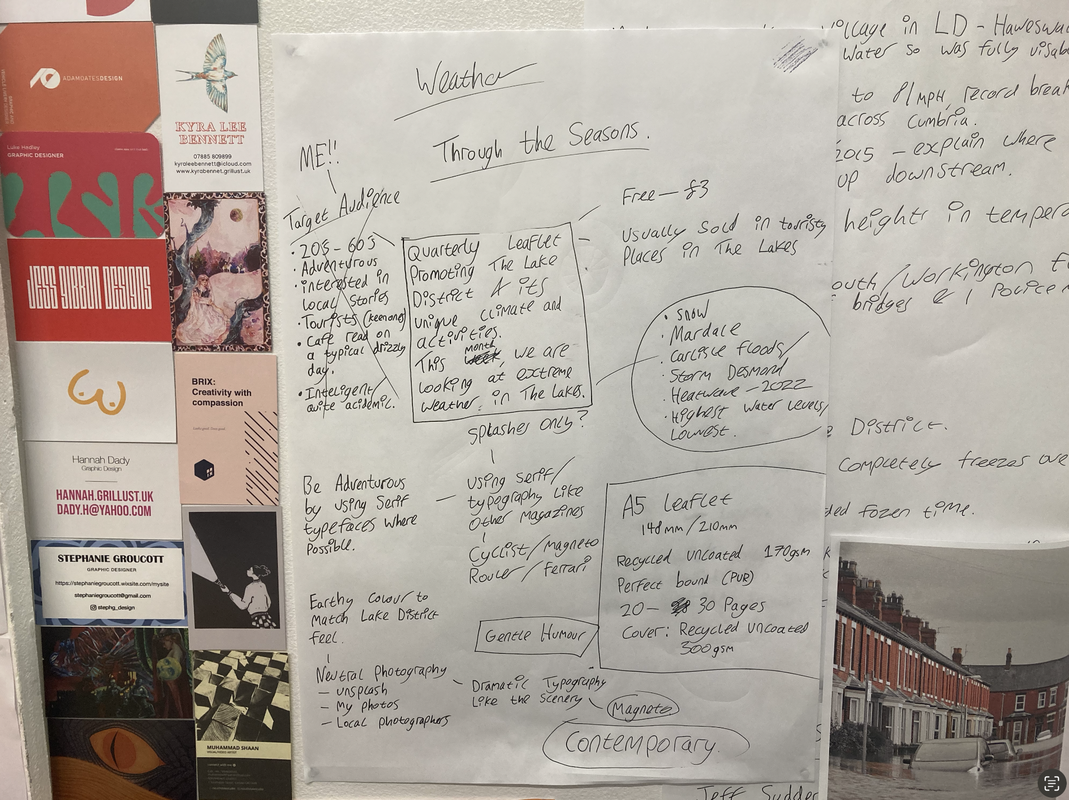 ADAMGATESDESIGN
KYRA LEE
BENNETT
07885 809899
kyraleebennett@icloud.com
www.kyrabennet.grillust.uk
Luke Hedley
GRAPHIC DESIGNER
JESS GIBBON DESIGNS
BRIX:
Creativity with
compassion
Hannah Dady
Graphic Design
HANNAH.GRILLUST.UK
DADY.H@YAHOO.COM
STEPHANIE GROUCOTT
GRAPHIC DESIGNER
https://stephgroucott.wixsite.com/mysite
stephgroucott@gmail.com
stephg_design
MUHAMMAD SHAAN
Weather
Through the Seasons.
ME!!
Target Audience
• 20s - 60s
• Adventurous
• interested in
local stories
• Tourists (keen ones)
• Cafe read on
a typical drizzly
day.
• Inteligent/
quite acidemic.
Quarterly Leaflet
Promoting The Lake
District & its
unique climate and
activities.
This month we are
looking at extreme
weather in The Lakes.
Free - £3
Usually Sold in touristy
Places in The Lakes
• Snow
• Mardale
• Carlisle floods/
• Storm Desmond
• Heatwave - 2022
• Highest Water Levels/
Lowest.
Splashes only?
Using Serif/
typography Like
Other Magazines
Cyclist/Magneto
Rouler/Ferrari
Be Adventurous
by using Serif
typefaces where
Possible.
Earthy colour to
Match Lake District
feel.
Neutral photography
- unsplash
- My photos
- Local photographers
Gentle Humour
Dramatic Typography
Like the Scenery
Magneto
Contemporary.
A5 Leaflet
148mm/210mm
Recycled uncoated 170gsm
Perfect bound (PUR)
20 - 30 Pages
Cover: Recycled Uncoated
300gsm
village in LD - Haweswa
Water so was fully visab
to 81MPH, record break
across Cumbria.
2015 - explain where
up downstream.
heights in tempera
outh/Workington f
bridges & 1 Police
District.
Completely freezes ove
ded fozen time.
Jeff Sudder